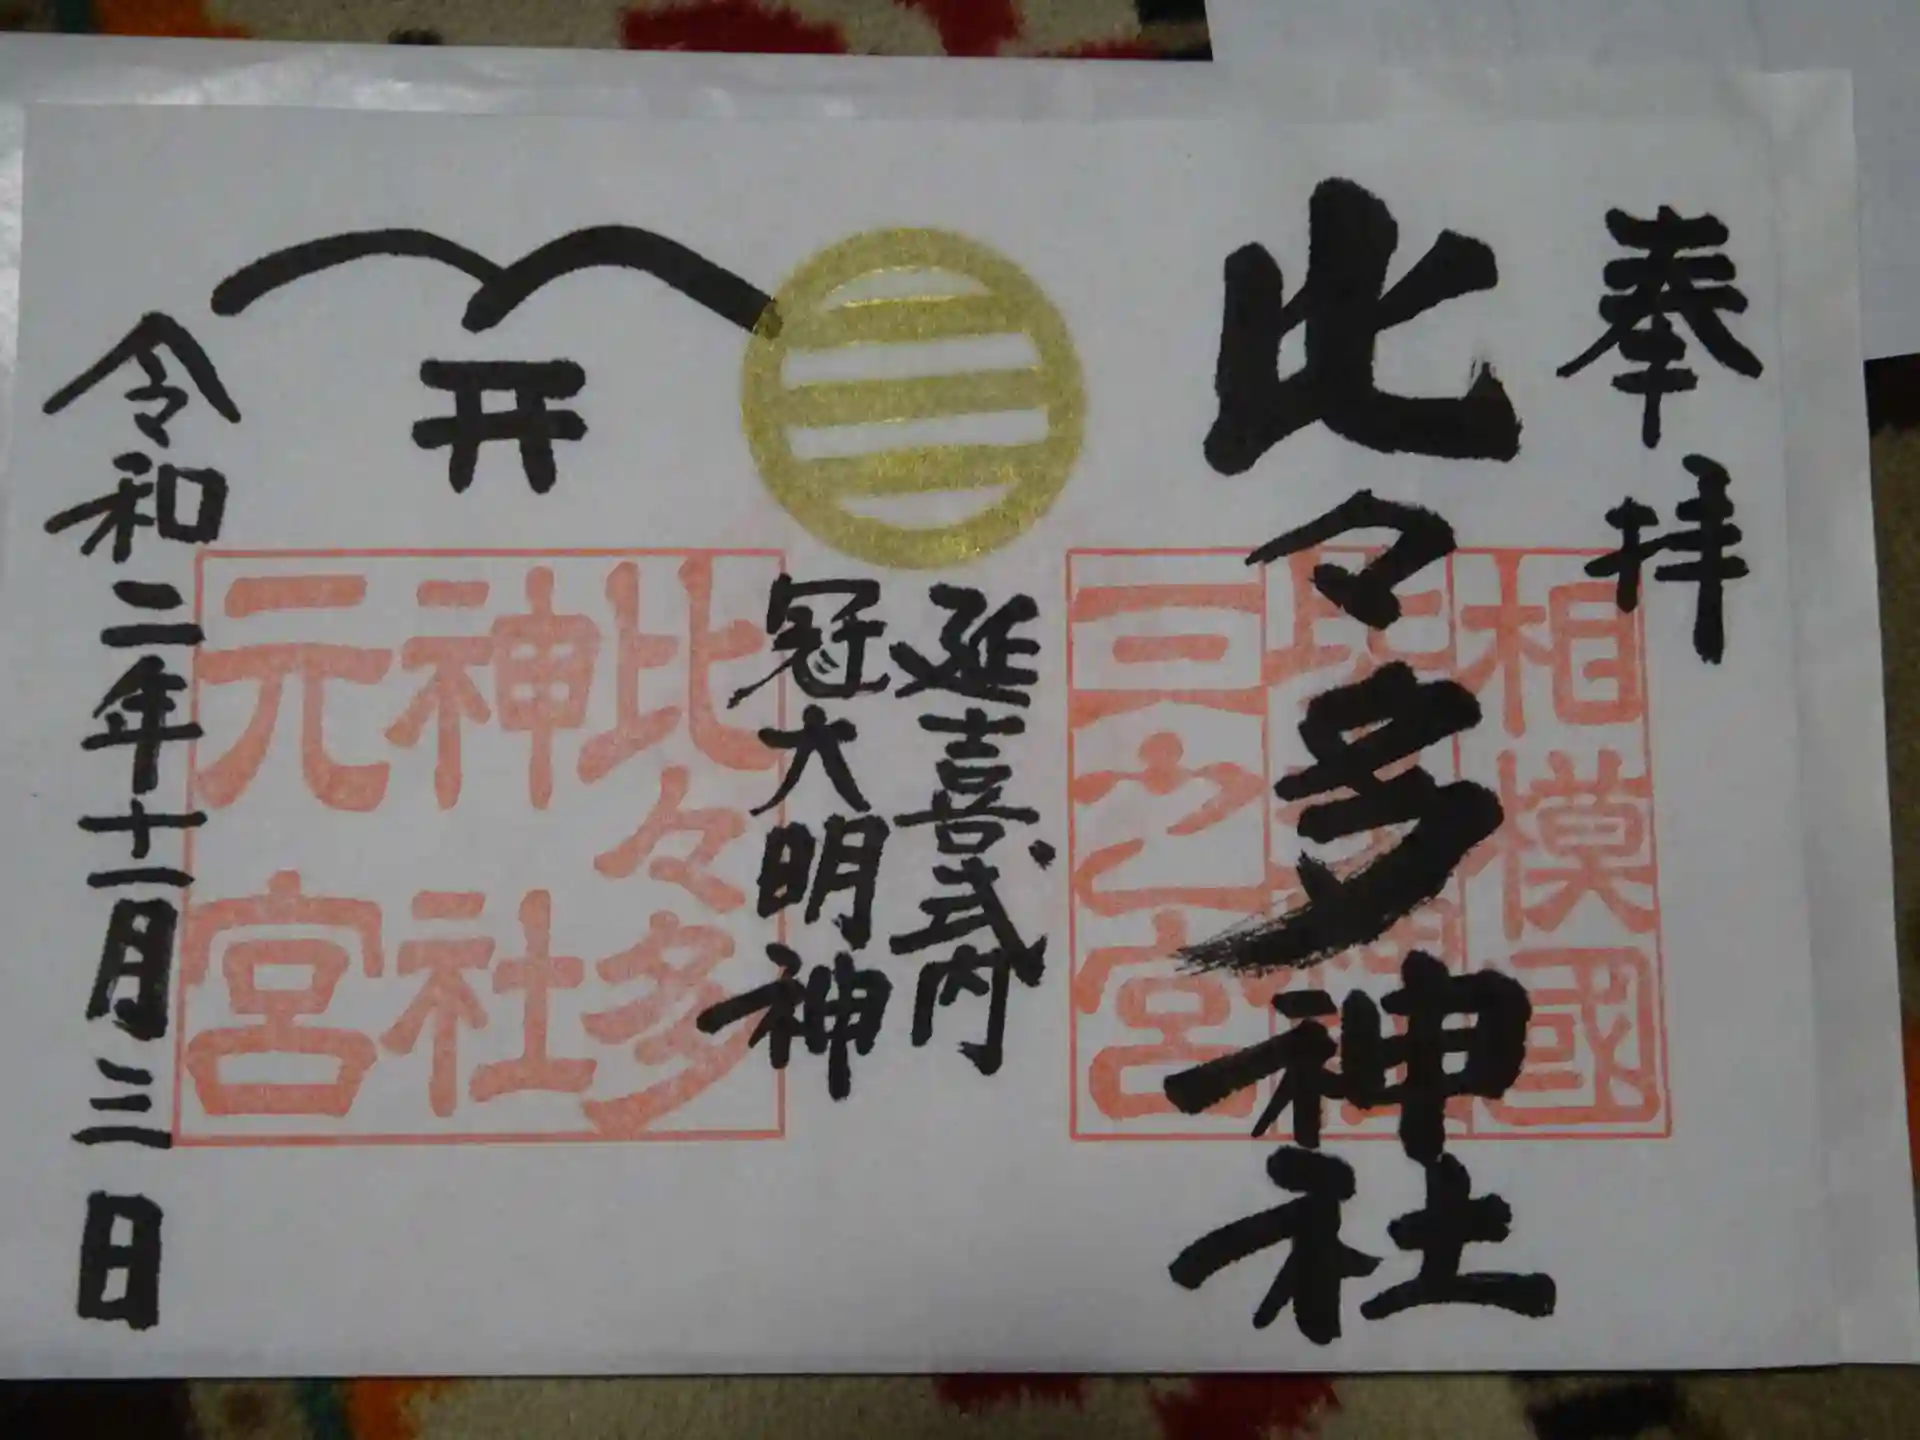 奉拝
比々多神社
相模國
三之宮
延喜式内
冠大明神
比々多
神社
元宮
令和二年十一月三日